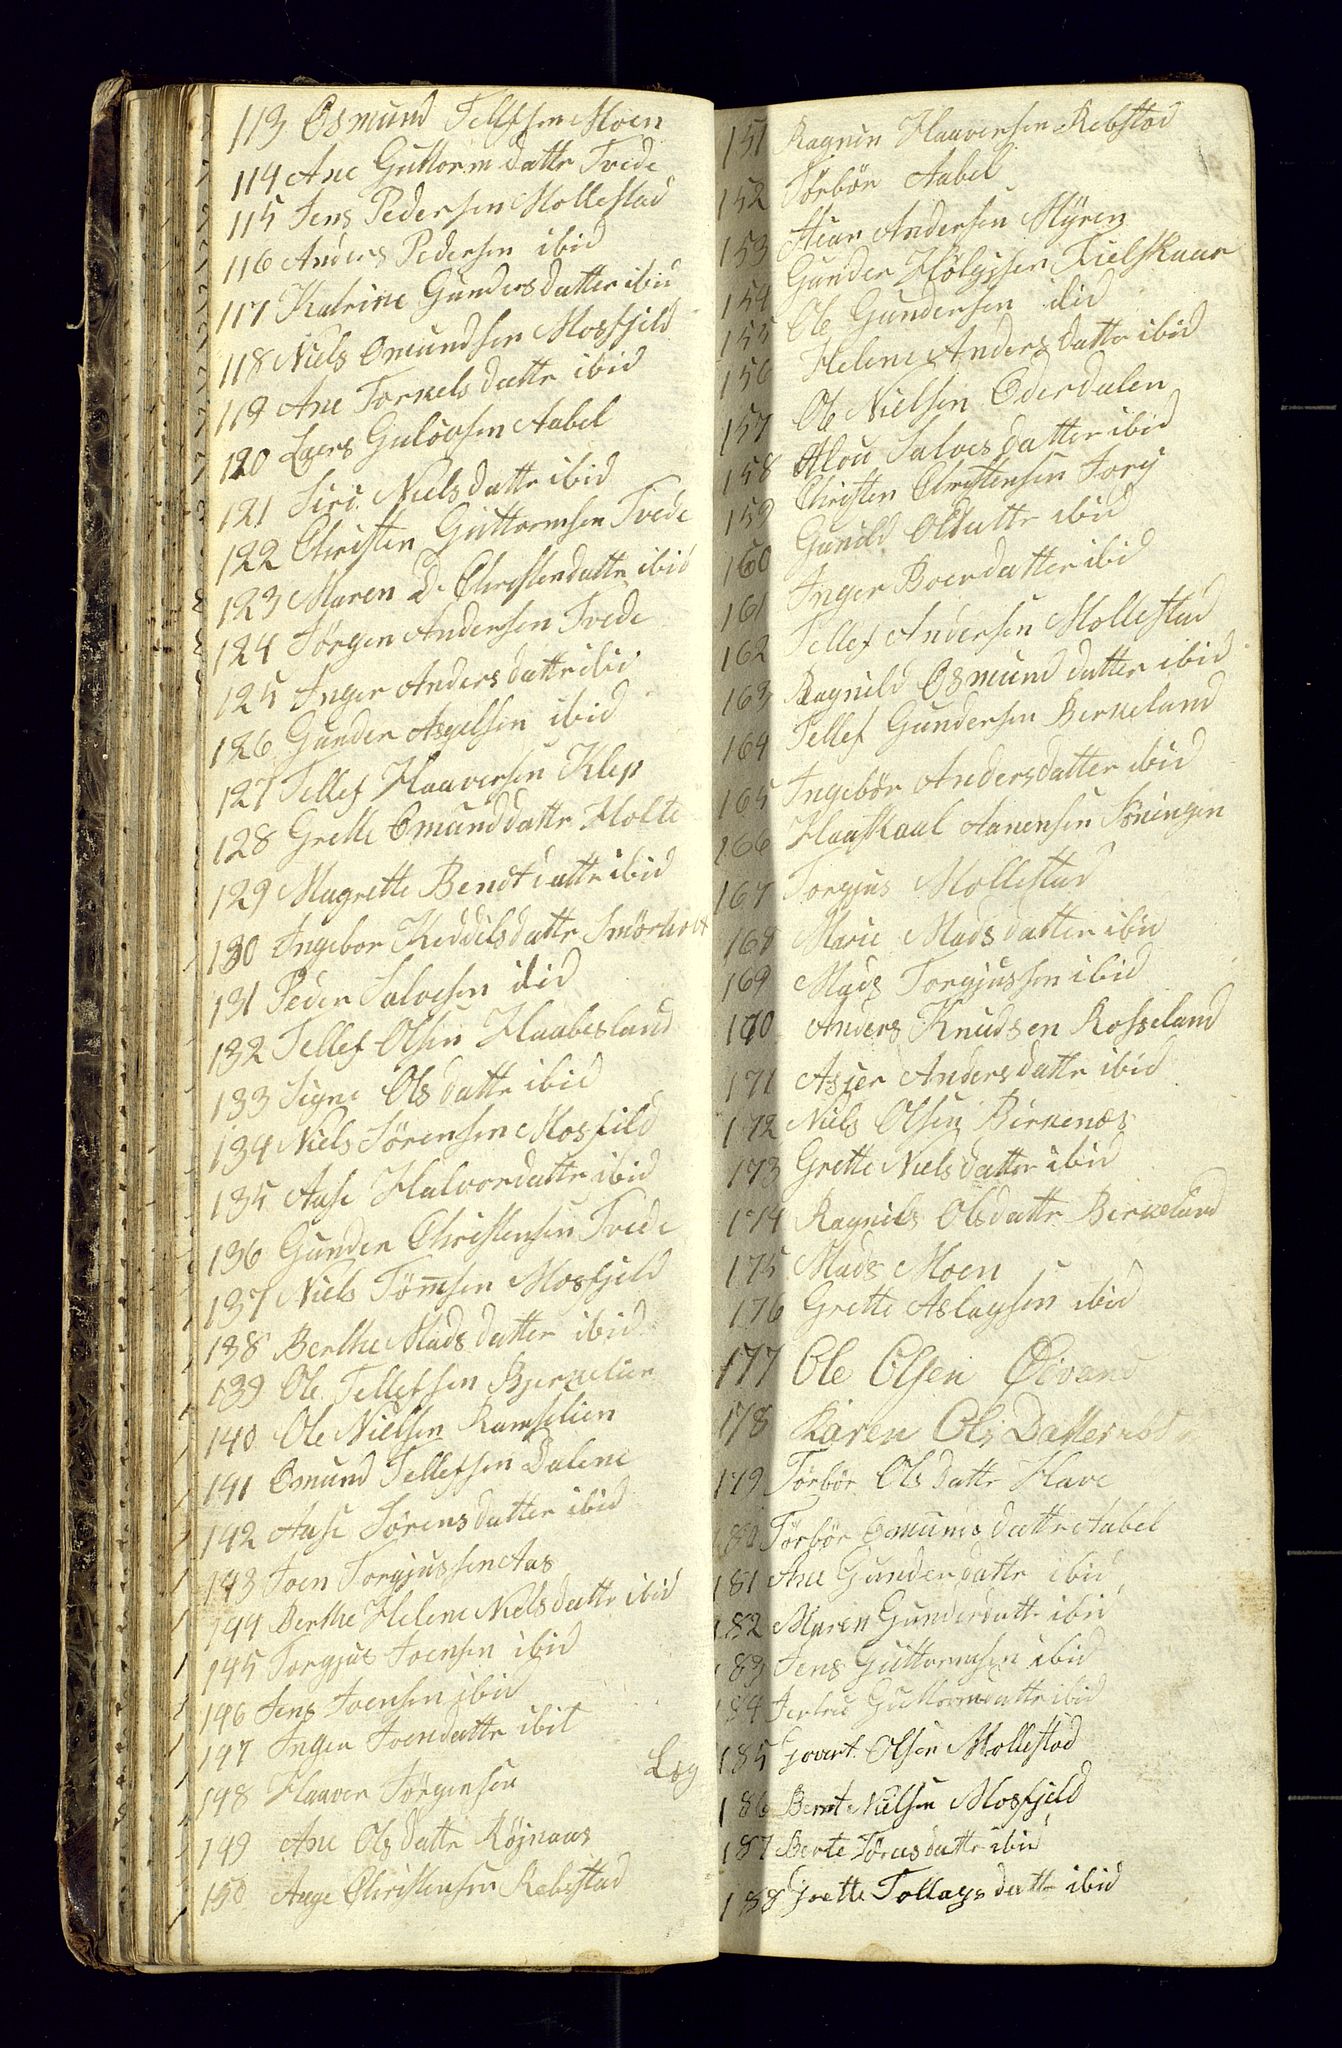 113 Osmund Tellefsen Moen
114 Ane Guttorm datte Tvede
115 Jens Pedersen Mollestad
116 Anders Pedersen ibid
117 Katrine Gunders datter ibid
118 Niels Omundsen Mosfjeld
119 Ane Torkels datte ibid
120 Laers Gulovsen Aabel
121 Siri Niels datte ibid
122 Christen Guttormsen Tvede
123 Maren D. Christendatte ibid
124 Jörgen Andersen Tvede
125 Inger Anders datte ibid
126 Gunder Asgelsen ibid
127 Tellef Haaversen Klep
128 Grette Omunddatte Holte
129 Magrette Bendt datte ibid
130 Ingebor Keddelsdatte
131 Peder Salvesen ibid
132 Tellef Olsen Haabesland
133 Signe Ols datte ibid
134 Niels Sörensen Mosfild
135 Aase Halvordatte ibid
136 Gunder Christensen Tvede
137 Niels Tömsen Mosfjeld
138 Berthe Mads datter ibid
139 Ole Tellefsen
140 Ole Nielsen Ramselien
141 Omund Tellefsen Dalene
142 Aase Sörens datter ibid
143 Joen Torgjussen Aas
144 Berthe Helene Nielsdatte ibid
145 Torgjus Joensen ibid
146 Jens Joensen ibid
147 Inger Joendatte ibit
148 Haaver Jörgensen Log
149 Ane Ols datte Röjnaas
150 Aage Christensen Rebestad
151 Haaversen Rebstad
152 Törbör Aabel
153 Andersen Myren
154 Gunder Kielskaar
155 Ole Gundersen ibid
156 Helene Anders datte ibid
157 Ole Nielsen Oderdalen
158 Alou Salves datter ibid
159 Christen Christensen
160 Gunild Olsdatte ibid
161 Inger Boerdatter ibid
162 Tellef Andersen Mollestad
163 Ragnild Osmund datter ibid
164 Tellef Gundersen Berkeland
165 Ingebör Andersdatter ibid
166 Haaskaal Aanensen
167 Torgjus Mollestad
168 Marie Mads datter ibid
169 Mads Torgjussen ibid
170 Anders Knudsen Rosseland
171 Asjer Anders datte ibid
172 Niels Olsen Birkenæs
173 Grette Niels datter ibid
174 Ragnild Olsdatte Berkeland
175 Mads Moen
176 Grette Aslagsen ibid
177 Ole Olsen Öivand
178 Karen Ols Datter ibid
179 Törbör Ols datte Have
180 Törbör Omunds datte Aabel
181 Ane Gunderdatte ibid
182 Maren Gunderdatte ibid
183 Jens Guttormsen ibid
184 Guttormsdatte ibid
185 Govert Olsen Mollestad
186 Bernt Nielsen Mosfjeld
187 Berte Törres datte ibid
188 Grette Tollags datte ibid